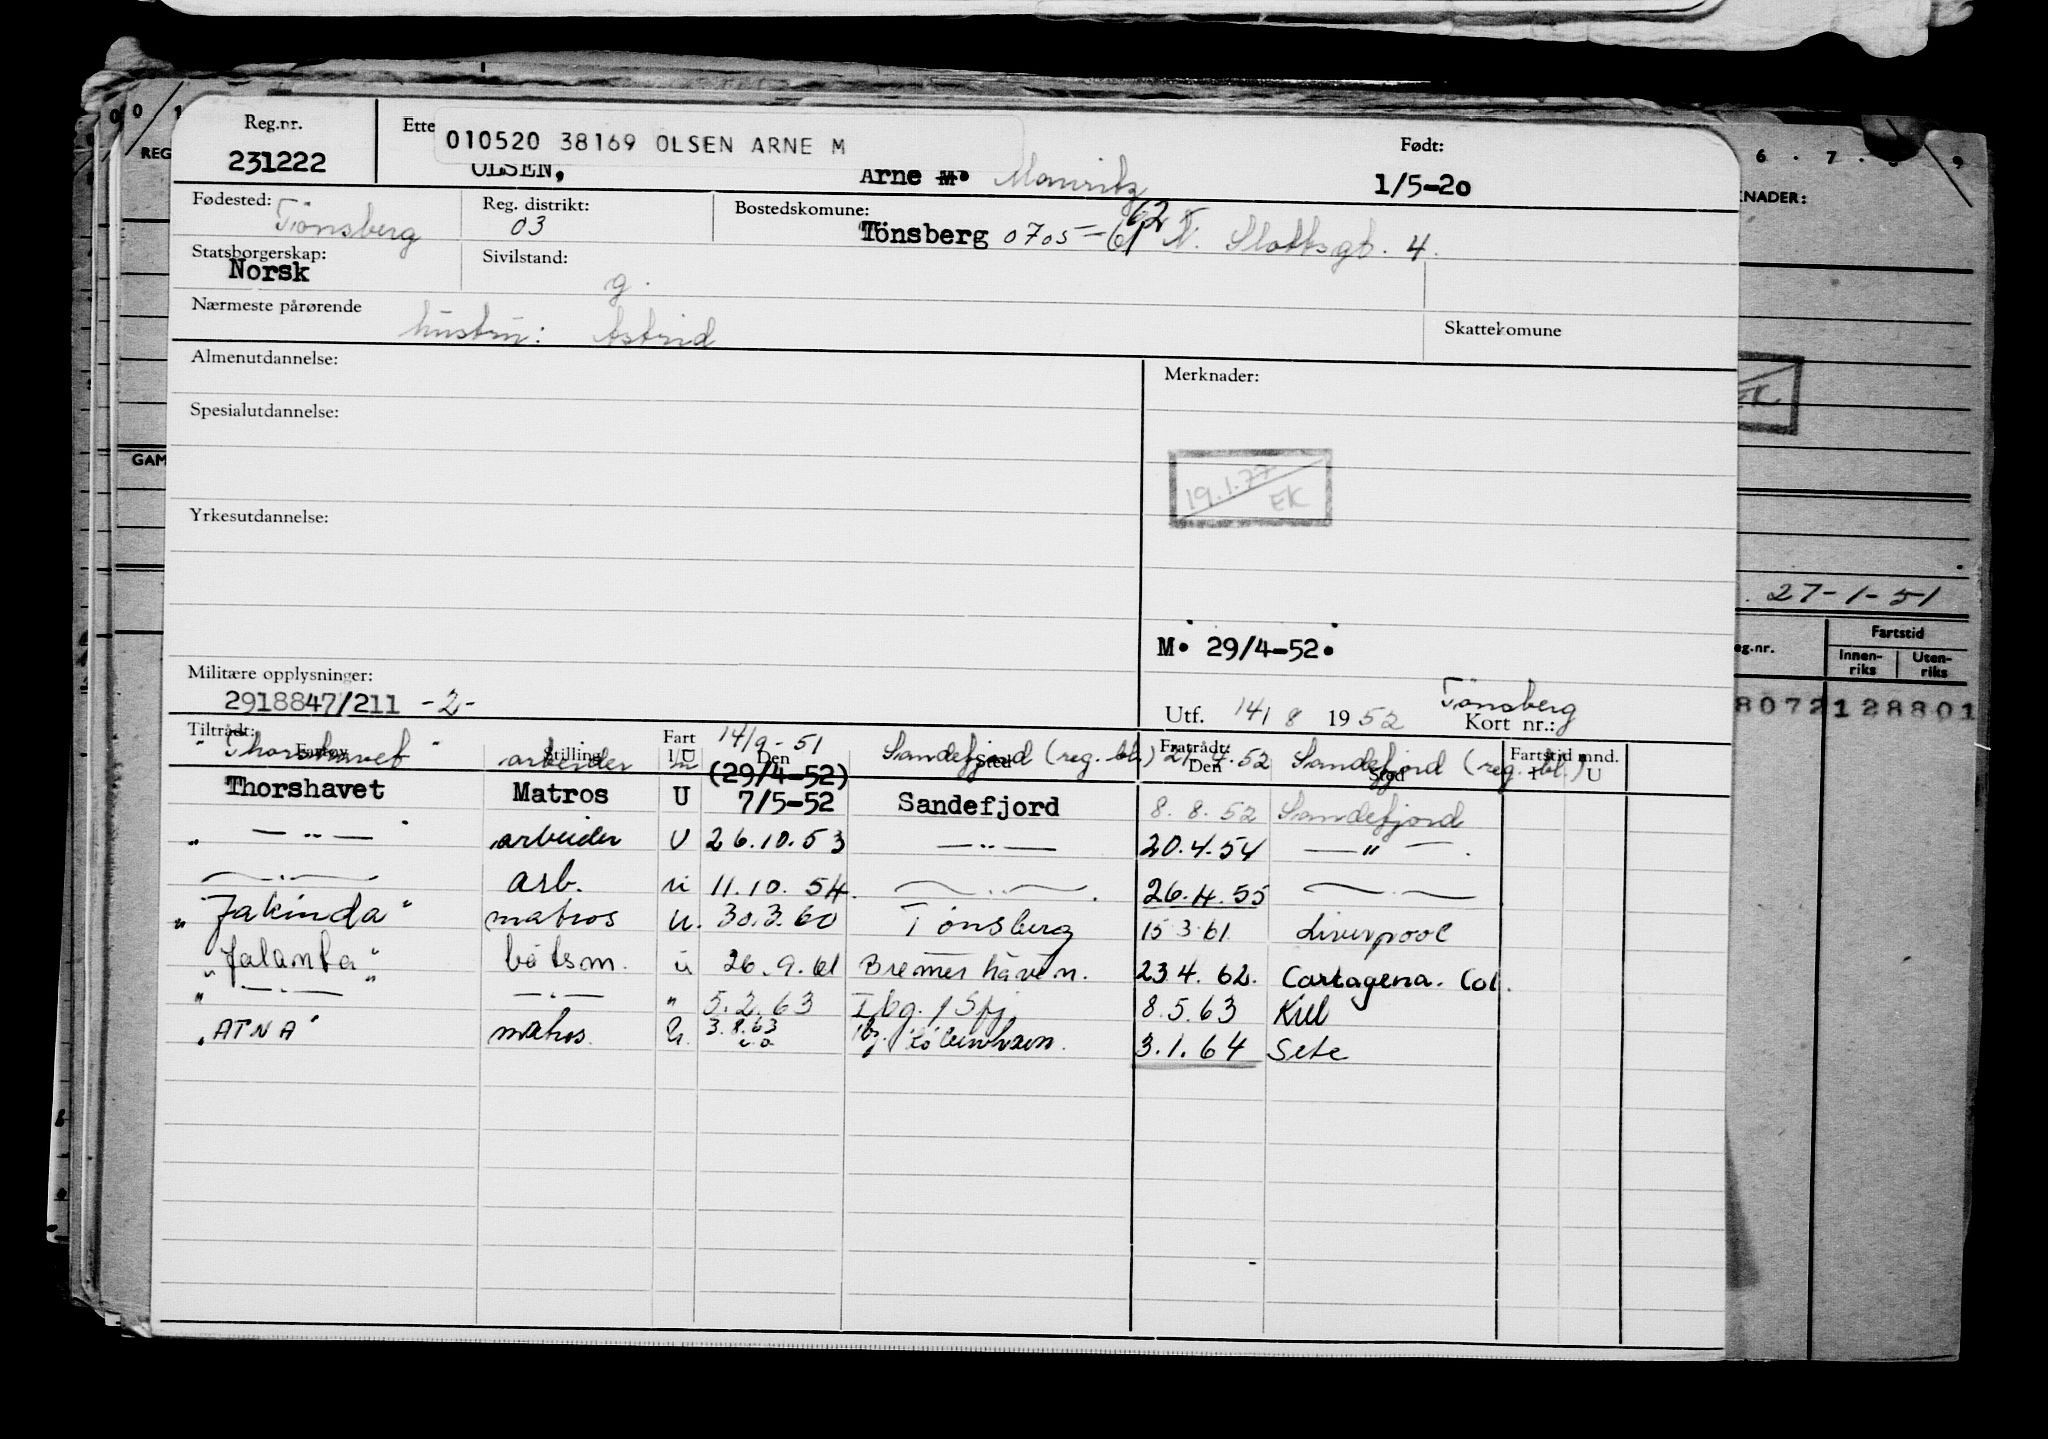 Reg.nr. Ette 010520 38169 OLSEN ARNE M Født:
231222 OLSEN, Arne M. Mauritz 1/5-20
Fødested: Tönsberg Reg. distrikt: 03 Bostedskomune: Tönsberg 0705 - 62 N. Slottsgt. 4.
Statsborgerskap: Norsk Sivilstand: g.
Nærmeste pårørende hustru: Astrid Skattekomune
Almenutdannelse: Merknader:
Spesialutdannelse:
19.1.77 EK
Yrkesutdannelse:
M. 29/4-52.
Militære opplysninger:
2918847/211 -2- Utf. 14/8 1952 Tönsberg Kort nr.:
Tiltrådt: Fratrådt:
Fartøy Stilling Fart I/U Den Sted Den Sted Fartstid mnd. I U
"Thorshavet" arbeider u 14/9-51 Sandefjord (reg. bl.) 52 Sandefjord (reg. bl.)
(29/4-52)
Thorshavet Matros U 7/5-52 Sandefjord 8.8.52 Sandefjord
" — " — " arbeider U 26.10.53 — " — 20.4.54 — " — .
— " — arb. u 11.10.54. — " — . 26.4.55 — " —
"Jakinda" matros u. 30.3.60 Tønsberg 15 3 61 Liverpool
"Jalanta" båtsm. u 26.9.61 Bremerhaven. 23 4. 62. Cartagena. Col.
" — " — " — " — " 5.2.63 Tbg. / Sfj. 8.5.63 Kiel
"ATNA" matros. u. 3.8.63 København. 3.1.64 Sete
REG
GAM
6 . 7 . 8 . 9
KNADER:
EK
. 27-1-51
eg.nr. Fartstid
Innen-riks Uten-riks
80721 28801